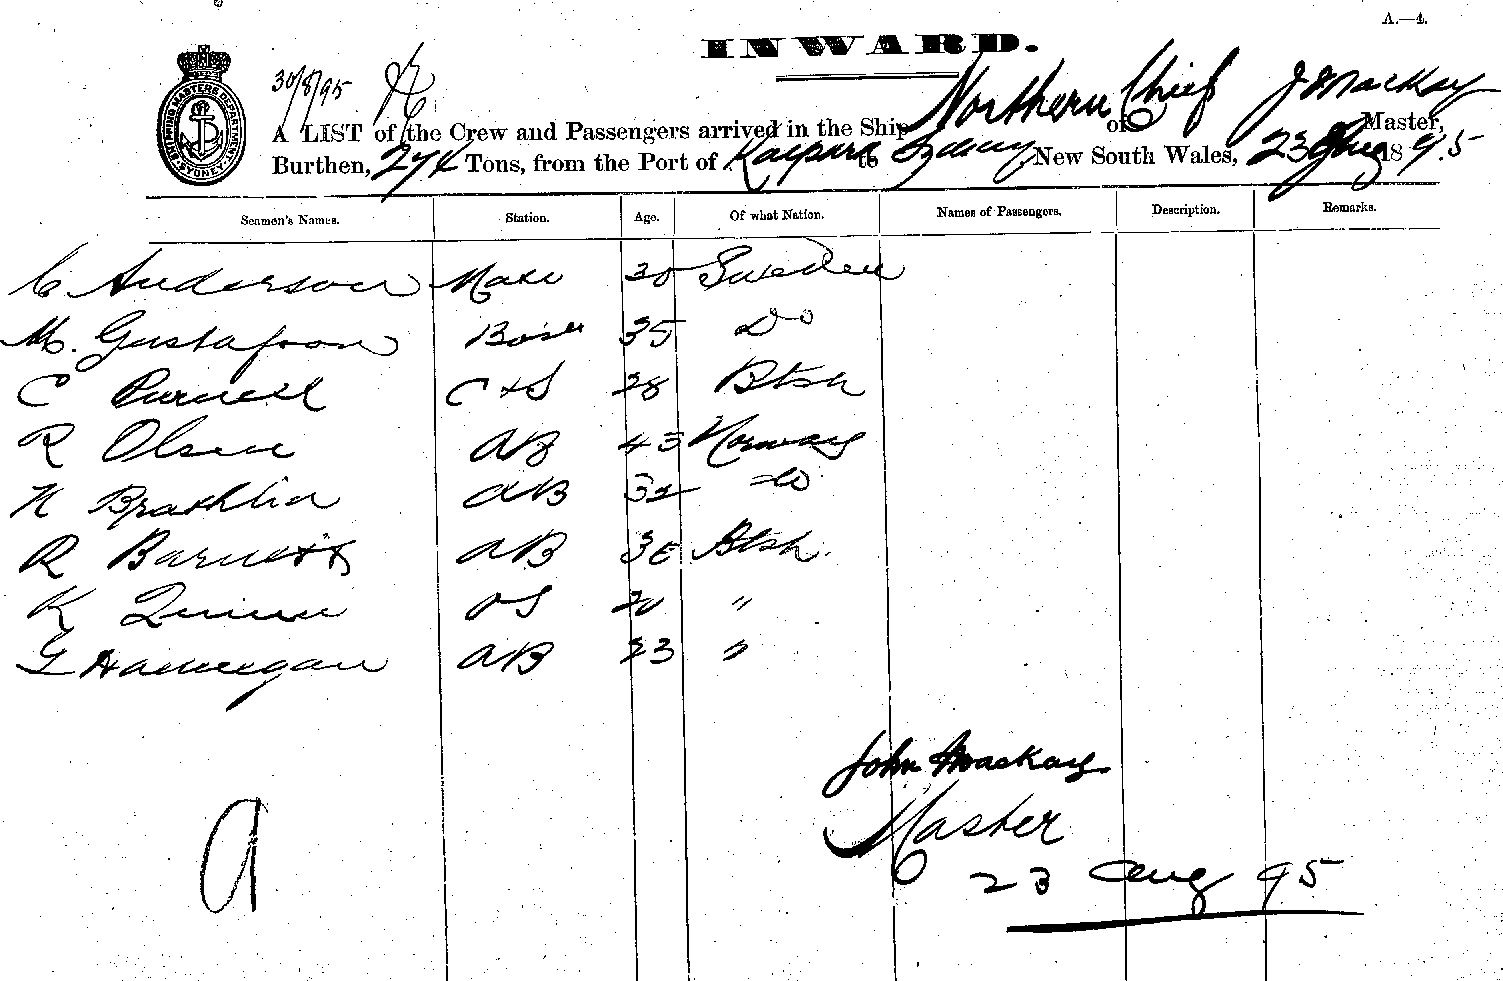 A.—4.
INWARD.
SHIPPING MASTERS DEPARTMENT SYDNEY
30/8/95
A LIST of the Crew and Passengers arrived in the Ship Northern Chief of J Mackay Master,
Burthen, 274 Tons, from the Port of Kaipara to Sydney New South Wales, 23 Aug 1895
Seamen's Names. Station. Age. Of what Nation. Names of Passengers. Description. Remarks.
C Anderson Mate 30 Sweden
M. Gustafson Bosn 35 Do
C Purnell C & S 28 Btsh
R Olsen AB 43 Norway
N AB 32 do
R Barnett AB 36 Btsh.
K Quinn OS 20 "
G Hannegan AB 23 "
John Mackay
Master
23 Aug 95
a